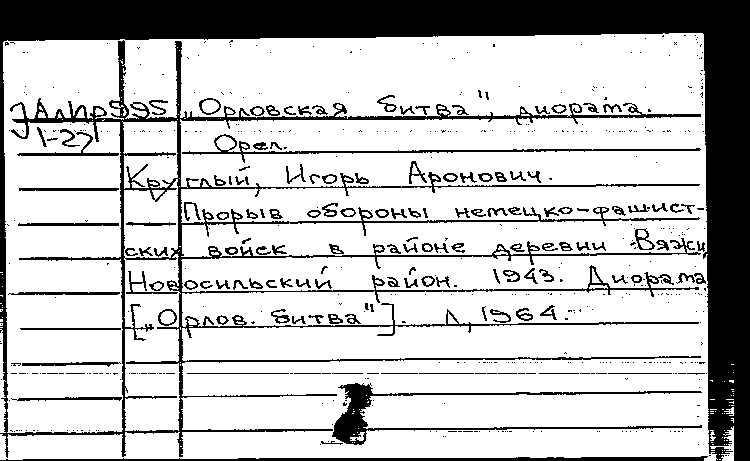 ЭАлпр995 „Орловская битва", диорама.
1-27 Орел.
Круглый, Игорь Аронович.
Прорыв обороны немецко-фашист-
ских войск в районе деревни Вяжи,
Новосильский район. 1943. Диорама
[„Орлов. битва"]. Л, 1964.